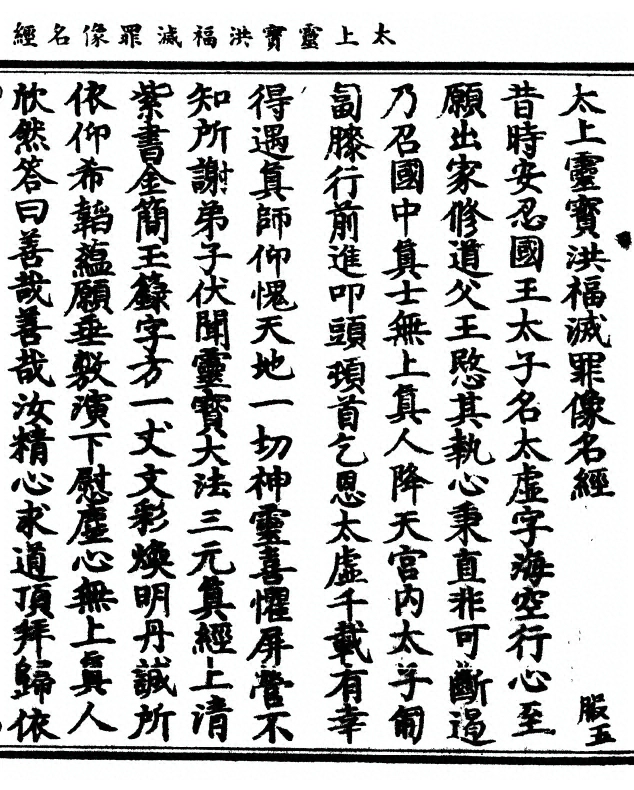 太上靈寳洪福滅罪像名經
太上靈寳洪福滅罪像名經 服五
昔時安忍國王太子名太虛字海空行心至
願出家修道父王愍其執心秉直非可斷遏
乃召國中眞士無上眞人降天宮內太子匍
匐膝行前進叩頭頊首乞恩太虛千載有幸
得遇眞師仰愧天地一切神靈喜懼屏營不
知所謝弟子伏聞靈寳大法三元眞經上清
紫書金簡玉籙字方一丈文彩煥明丹誠所
依仰希韜藴願垂敷演下慰虛心無上眞人
欣然答曰善哉善哉汝精心求道頂拜歸依